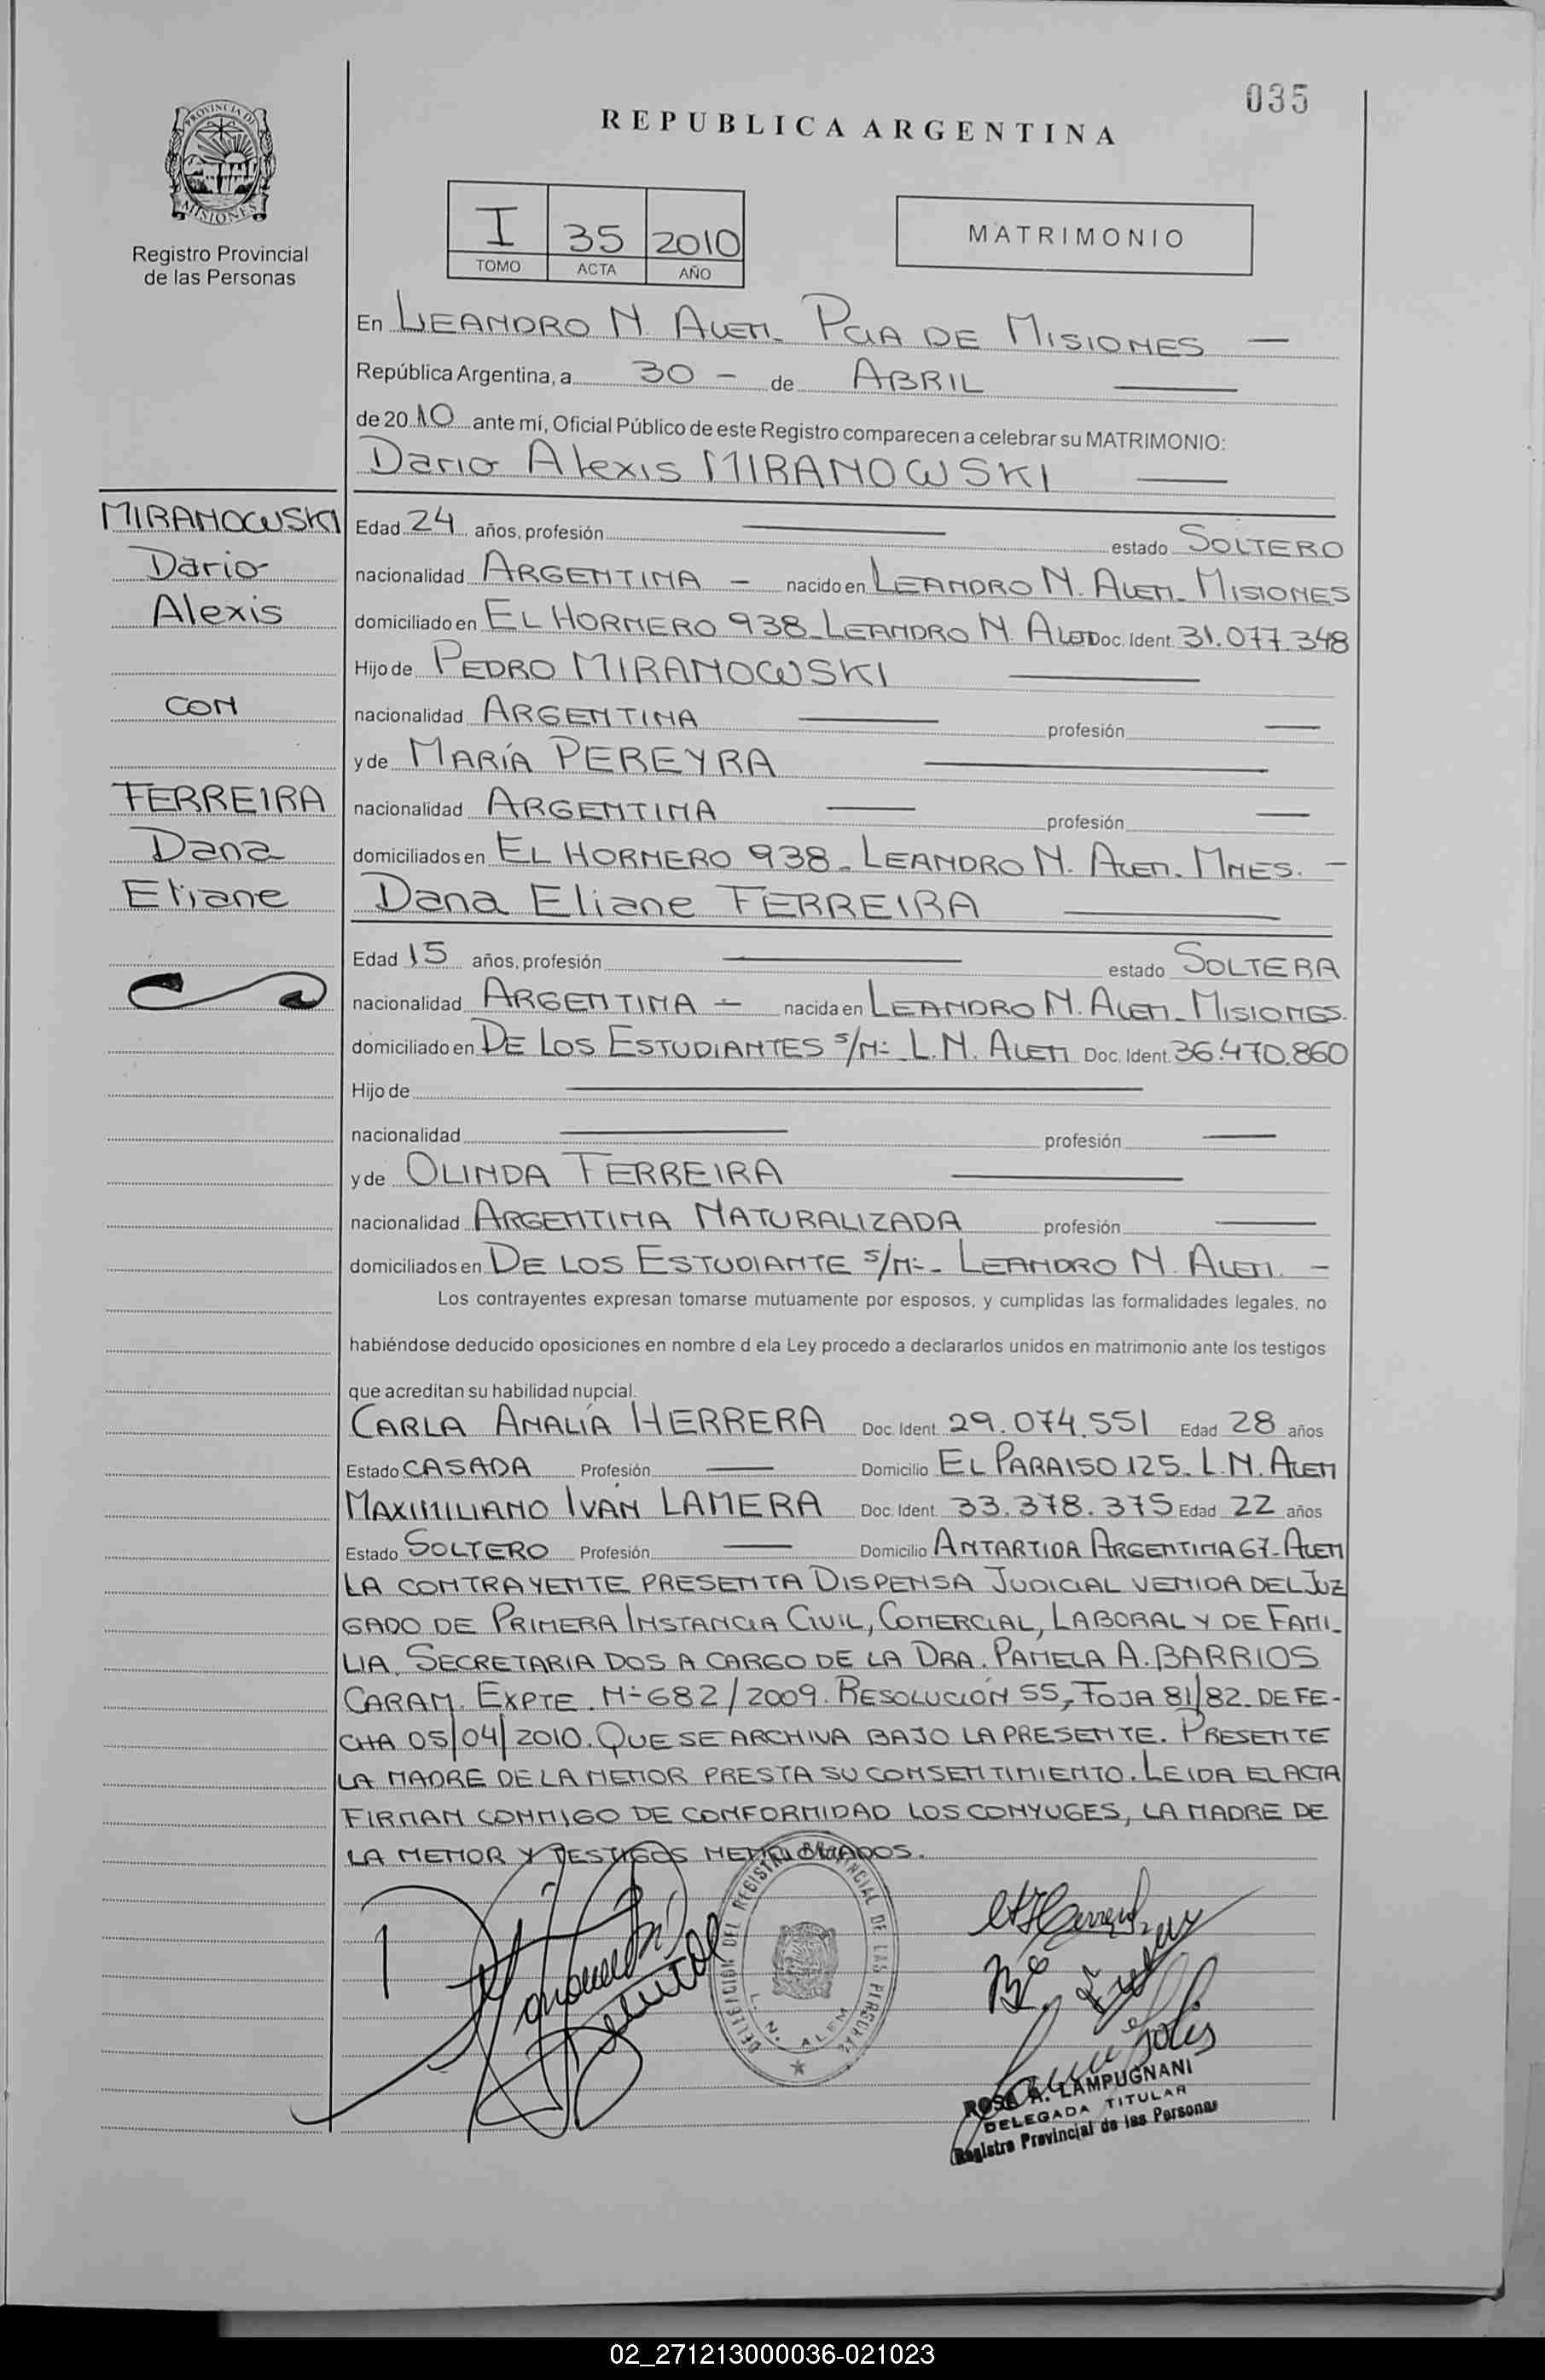 035
REPUBLICA ARGENTINA
PROVINCIA DE
MISIONES
Registro Provincial
de las Personas
I 35 2010
TOMO ACTA AÑO
MATRIMONIO
En LEANDRO N. ALEM. PCIA DE MISIONES —
República Argentina, a 30 - de ABRIL
de 2010 ante mí, Oficial Público de este Registro comparecen a celebrar su MATRIMONIO:
Dario Alexis MIRANOWSKI
MIRANOWSKI
Dario
Alexis
CON
FERREIRA
Dana
Eliane
Edad 24 años, profesión — estado SOLTERO
nacionalidad ARGENTINA - nacido en LEANDRO N. ALEM. MISIONES
domiciliado en EL HORNERO 938. LEANDRO N. ALEM Doc. Ident. 31.077.348
Hijo de PEDRO MIRANOWSKI
nacionalidad ARGENTINA — profesión —
y de MARÍA PEREYRA
nacionalidad ARGENTINA — profesión —
domiciliados en EL HORNERO 938. LEANDRO N. ALEM. MNES. -
Dana Eliane FERREIRA
Edad 15 años, profesión — estado SOLTERA
nacionalidad ARGENTINA - nacida en LEANDRO N. ALEM. MISIONES.
domiciliado en DE LOS ESTUDIANTES S/Nº. L.N. ALEM Doc. Ident. 36.470.860
Hijo de —
nacionalidad — profesión —
y de OLINDA FERREIRA
nacionalidad ARGENTINA NATURALIZADA profesión —
domiciliados en DE LOS ESTUDIANTE S/Nº. LEANDRO N. ALEM. -
Los contrayentes expresan tomarse mutuamente por esposos, y cumplidas las formalidades legales, no
habiéndose deducido oposiciones en nombre d ela Ley procedo a declararlos unidos en matrimonio ante los testigos
que acreditan su habilidad nupcial.
CARLA ANALÍA HERRERA Doc. Ident. 29.074.551 Edad 28 años
Estado CASADA Profesión — Domicilio EL PARAISO 125. L.N. ALEM
MAXIMILIANO IVÁN LAMERA Doc. Ident. 33.378.375 Edad 22 años
Estado SOLTERO Profesión — Domicilio ANTARTIDA ARGENTINA 67. ALEM
LA CONTRAYENTE PRESENTA DISPENSA JUDICIAL VENIDA DEL JUZ
GADO DE PRIMERA INSTANCIA CIVIL, COMERCIAL, LABORAL Y DE FAMI-
LIA. SECRETARIA DOS A CARGO DE LA DRA. PAMELA A. BARRIOS
CARAM. EXPTE. Nº 682/2009. RESOLUCIÓN 55, FOJA 81/82. DE FE-
CHA 05/04/2010. QUE SE ARCHIVA BAJO LA PRESENTE. PRESENTE
LA MADRE DE LA MENOR PRESTA SU CONSENTIMIENTO. LEIDA EL ACTA
FIRMAN CONMIGO DE CONFORMIDAD LOS CONYUGES, LA MADRE DE
LA MENOR Y TESTIGOS MENCIONADOS.
DELEGACION DEL REGISTRO PROVINCIAL DE LAS PERSONAS
L. N. ALEM
ROSA A. LAMPUGNANI
DELEGADA TITULAR
Registro Provincial de las Personas
02_271213000036-021023